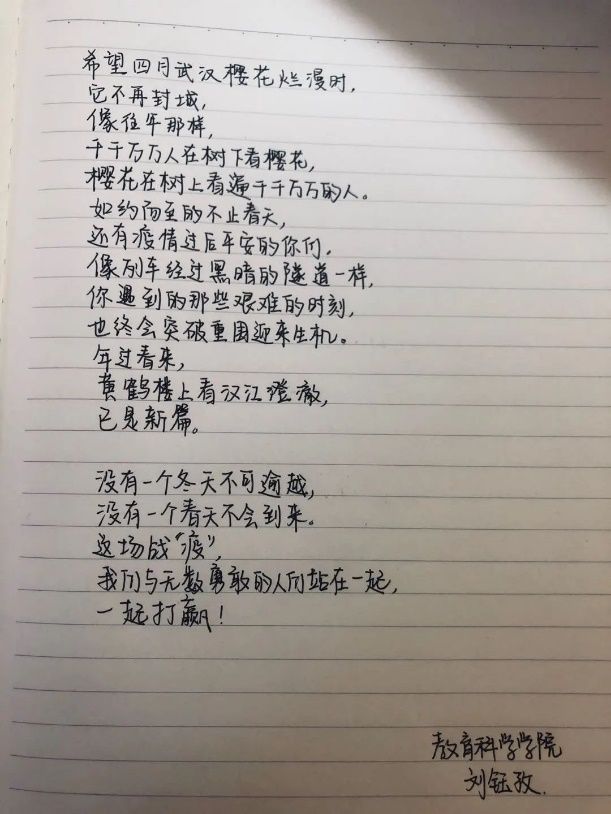 希望四月武汉樱花烂漫时，
它不再封城，
像往年那样，
千千万万人在树下看樱花，
樱花在树上看遍千千万万的人。
如约而至的不止春天，
还有疫情过后平安的你们，
像列车经过黑暗的隧道一样，
你遇到的那些艰难的时刻，
也终会突破重围迎来生机。
年过春来，
黄鹤楼上看汉江澄澈，
已是新篇。
没有一个冬天不可逾越，
没有一个春天不会到来。
这场战“疫”，
我们与无数勇敢的人们站在一起，
一起打赢！
教育科学学院
刘钰孜.